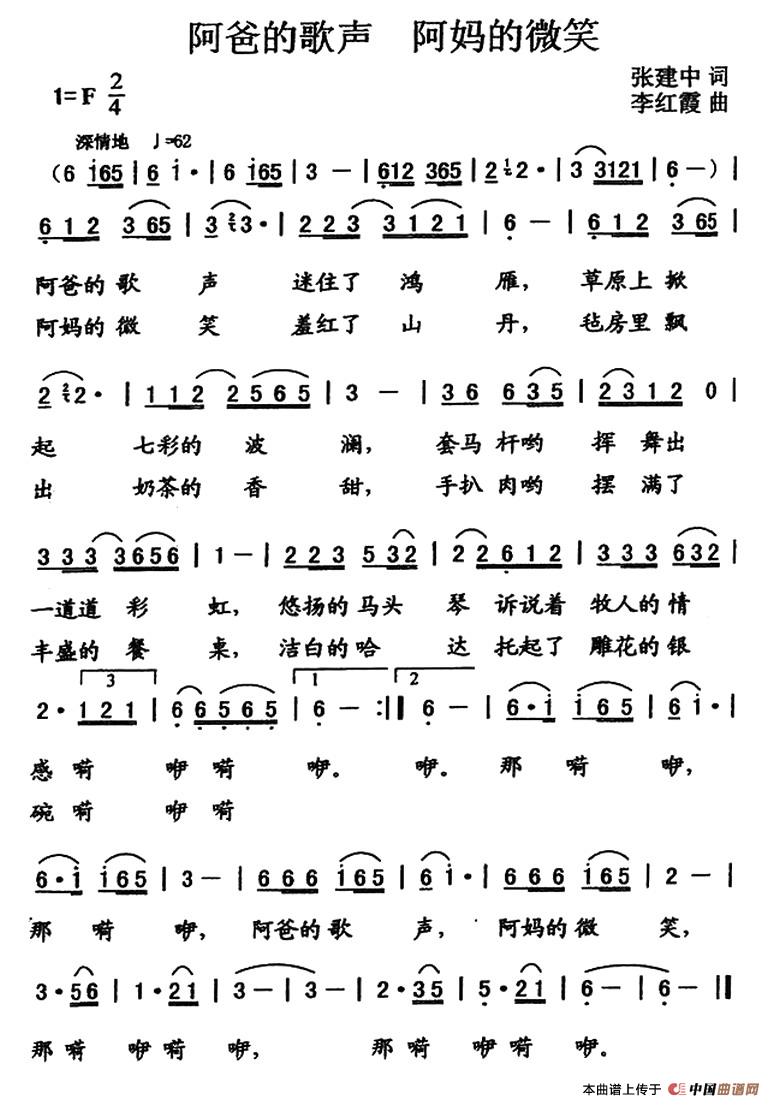 阿爸的歌声 阿妈的微笑
1=F 2/4
张建中 词
李红霞 曲
深情地 ♩=62
(6 i65 | 6 i· | 6 i65 | 3 － | 612 365 | 2 1/7 2· | 3 3121 | 6 － ) |
6 1 2 3 65 | 3 2/7 3· | 2 2 3 3 1 2 1 | 6 － | 6 1 2 3 65 |
阿爸的 歌 声 迷住了 鸿 雁, 草原上 掀
阿妈的 微 笑 羞红了 山 丹, 毡房里 飘
2 2/7 2· | 1 1 2 2 5 6 5 | 3 － | 3 6 6 3 5 | 2 3 1 2 0 |
起 七彩的 波 澜, 套马 杆哟 挥 舞出
出 奶茶的 香 甜, 手扒 肉哟 摆 满了
3 3 3 3 6 5 6 | 1 － | 2 2 3 5 3 2 | 2 2 6 1 2 | 3 3 3 6 3 2 |
一道道 彩 虹, 悠扬的 马头 琴 诉说着 牧人的 情
丰盛的 餐 桌, 洁白的 哈 达 托起了 雕花的 银
3 1 2
2 · 1 2 1 | 6 6 5 6 5 | 6 － :|| 6 － | 6 · i i 6 5 | 6 i · |
感 嗬 咿 嗬 咿。 咿。 那 嗬 咿,
碗 嗬 咿 嗬
6 · i i 6 5 | 3 － | 6 6 6 i 6 5 | 6 i · | 6 6 6 i 6 5 | 2 － |
那 嗬 咿, 阿爸的 歌 声, 阿妈的 微 笑,
3 · 5 6 | 1 · 2 1 | 3 － | 3 － | 2 · 3 5 | 5 · 2 1 | 6 － | 6 － |
那 嗬 咿 嗬 咿, 那 嗬 咿 嗬 咿。
本曲谱上传于 中国曲谱网